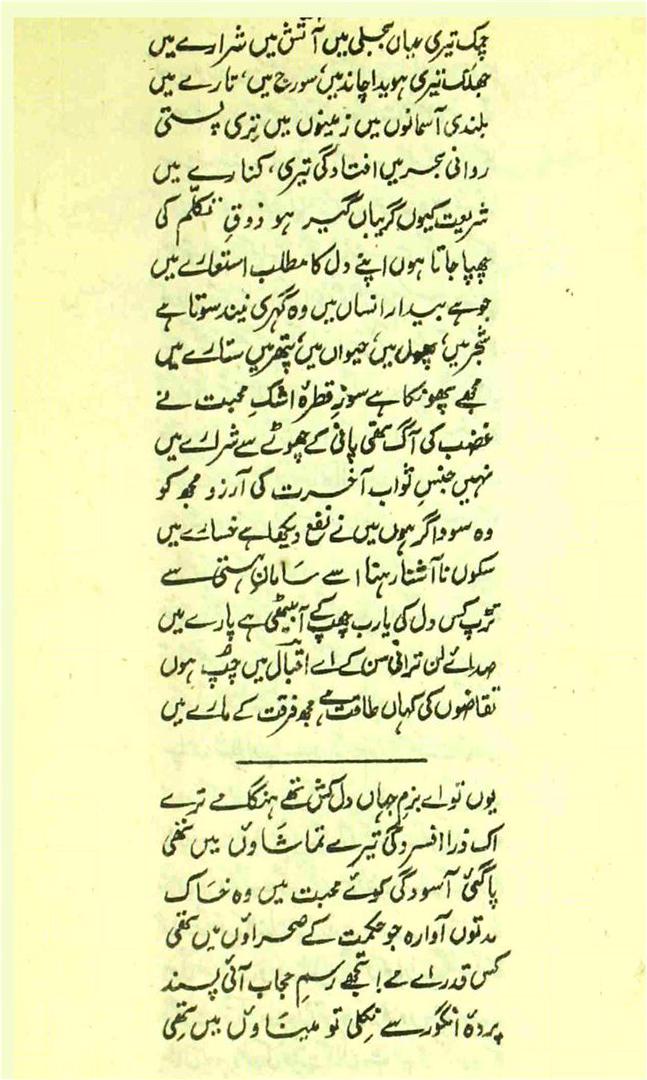 چمک تیری عیاں بجلی میں آتش میں شرارے میں
جھلک تیری ہویدا چاند میں، سورج میں، تارے میں
بلندی آسمانوں میں زمینوں میں تری پستی
روانی بحر میں افتادگی تیری، کنارے میں
شریعت کیوں گریباں گیر ہو ذوقِ تکلّم کی
چھپا جاتا ہوں اپنے دل کا مطلب استعارے میں
جو ہے بیدار انساں میں وہ گہری نیند سوتا ہے
شجر میں، پھول میں، حیواں میں، پتھر میں ستارے میں
مجھے پھونکا ہے سوزِ قطرۂ اشکِ محبت نے
غضب کی آگ تھی پانی کے چھوٹے سے شرارے میں
نہیں جنسِ ثوابِ آخرت کی آرزو مجھ کو
وہ سوداگر ہوں میں نے نفع دیکھا ہے خسارے میں
سکوں ناآشنا رہنا اسے سامانِ ہستی ہے
تڑپ کس دل کی یارب چھپ کے آ بیٹھی ہے پارے میں
صدائے لن ترانی سن کے اے اقبال میں چپ ہوں
تقاضوں کی کہاں طاقت ہے مجھ فرقت کے مارے میں
یوں تو اے بزمِ جہاں دل کش تھے ہنگامے ترے
اک ذرا افسردگی تیرے تماشاؤں میں تھی
پا گئی آسودگی کوئے محبت میں وہ خاک
مدتوں آوارہ جو حکمت کے صحراؤں میں تھی
کس قدر اے مے! تجھے رسمِ حجاب آئی پسند
پردۂ انگور سے نکلی تو میناؤں میں تھی